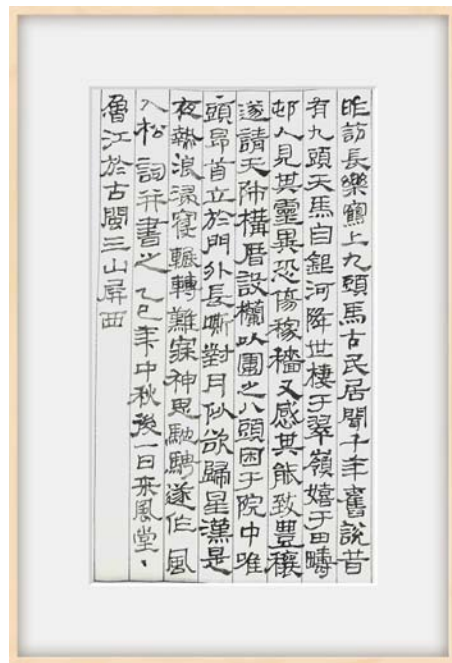 昨訪長樂鶴上九頭馬古民居聞千年舊說昔
有九頭天馬自銀河降世棲于翠嶺嬉于田疇
邨人見其靈異恐傷稼穡又感其能致豊穰
遂請天師構厝設欄以圍之八頭困于院中唯
一頭昂首立於門外長嘶對月似欲歸星漢是
夜熱浪濕寢輾轉難寐神思馳騁遂作風
入松詞并書之乙巳年中秋後一日來風堂、
魯江於古閩三山屏西